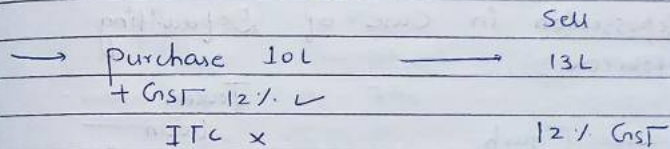 Sell
→ Purchase 10L → 13L
+ GST 12% ✓
ITC × 12% GST